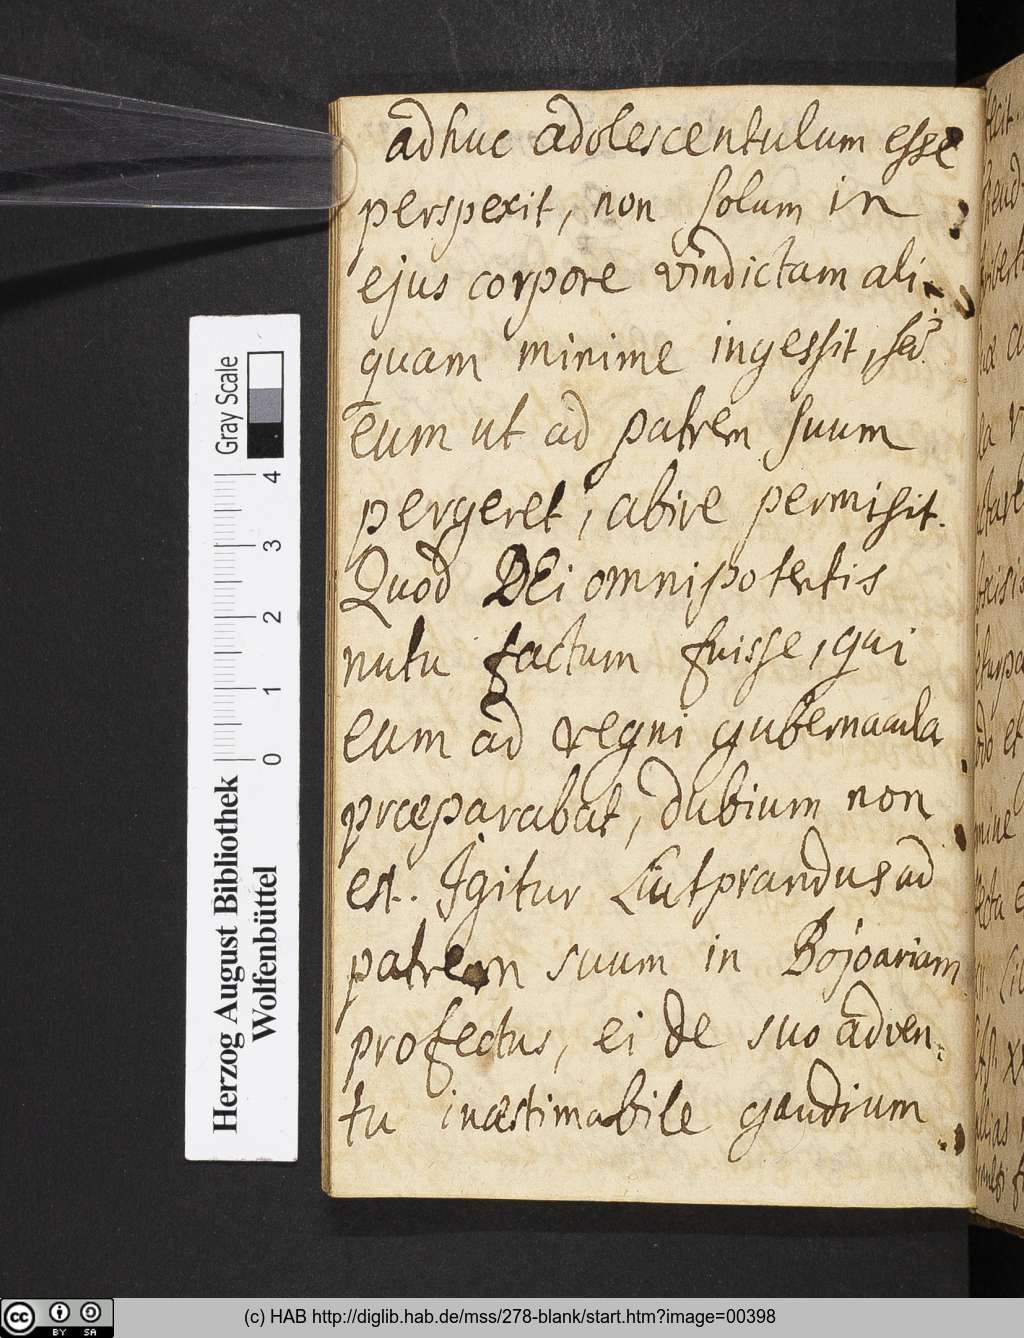 adhuc adolescentulum esse
perspexit, non solum in
ejus corpore vindictam ali-
quam minime ingessit, sed
eum ut ad patrem suum
pergeret, abire permisit.
Quod DEi omnipotentis
nutu factum fuisse, qui
eum ad regni gubernacula
præparabat, dubium non
est. Igitur Liutprandus ad
patrem suum in Bojoariam
profectus, ei de suo adven:
tu inæstimabile gaudium
Gray Scale
4
3
2
1
0
Herzog August Bibliothek
Wolfenbüttel
cc BY SA
(c) HAB http://diglib.hab.de/mss/278-blank/start.htm?image=00398